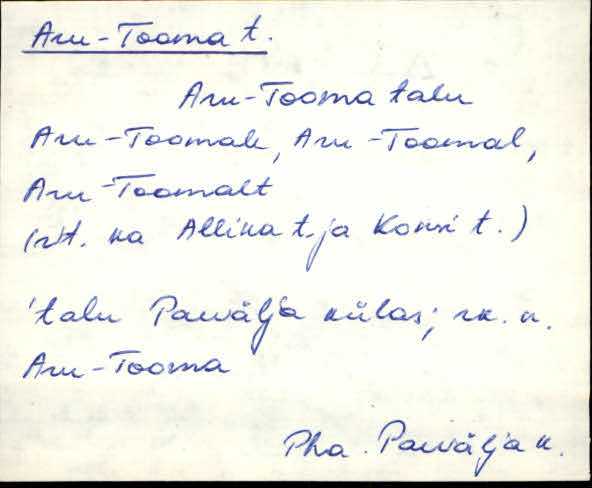 Aru-Tooma t.
Aru-Tooma talu
Aru-Toomale, Aru-Toomal,
Aru-Toomalt
(vt. ka Allika t. ja Konsi t.)
'talu Parivälja külas; rk. n.
Aru-Tooma
Pha. Parivälja k.